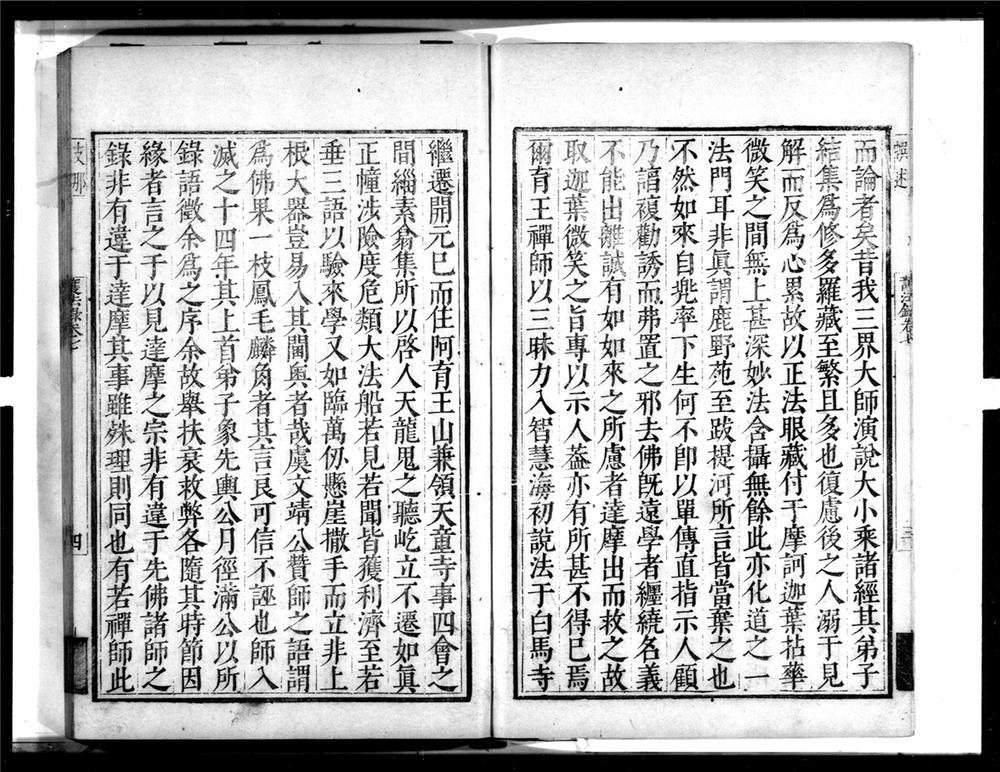 撰述
護法錄卷七
而論者矣昔我三界大師演說大小乘諸經其弟子
結集爲修多羅藏至繁且多也復慮後之人溺于見
解而反爲心累故以正法眼藏付于摩訶迦葉拈華
微笑之間無上甚深妙法含攝無餘此亦化道之一
法門耳非眞謂鹿野苑至跋提河所言皆當棄之也
不然如來自兠率下生何不卽以單傳直指示人顧
乃諄複勸誘而弗置之邪去佛旣遠學者纏繞名義
不能出離誠有如如來之所慮者達摩出而救之故
取迦葉微笑之旨專以示人葢亦有所甚不得已焉
爾育王禪師以三昧力入智慧海初說法于白馬寺
繼遷開元已而住阿育王山兼領天童寺事四會之
間緇素翕集所以啓人天龍鬼之聽屹立不遷如眞
正幢涉險度危類大法船若見若聞皆獲利濟至若
垂三語以驗來學又如臨萬仞懸崖撒手而立非上
根大器豈易入其閫奥者哉虞文靖公贊師之語謂
爲佛果一枝鳳毛麟角者其言良可信不誣也師入
滅之十四年其上首弟子象先輿公月徑滿公以所
錄語徵余爲之序余故舉扶衰救弊各隨其時節因
緣者言之于以見達摩之宗非有違于先佛諸師之
錄非有違于達摩其事雖殊理則同也有若禪師此
支那
護法錄卷七
四